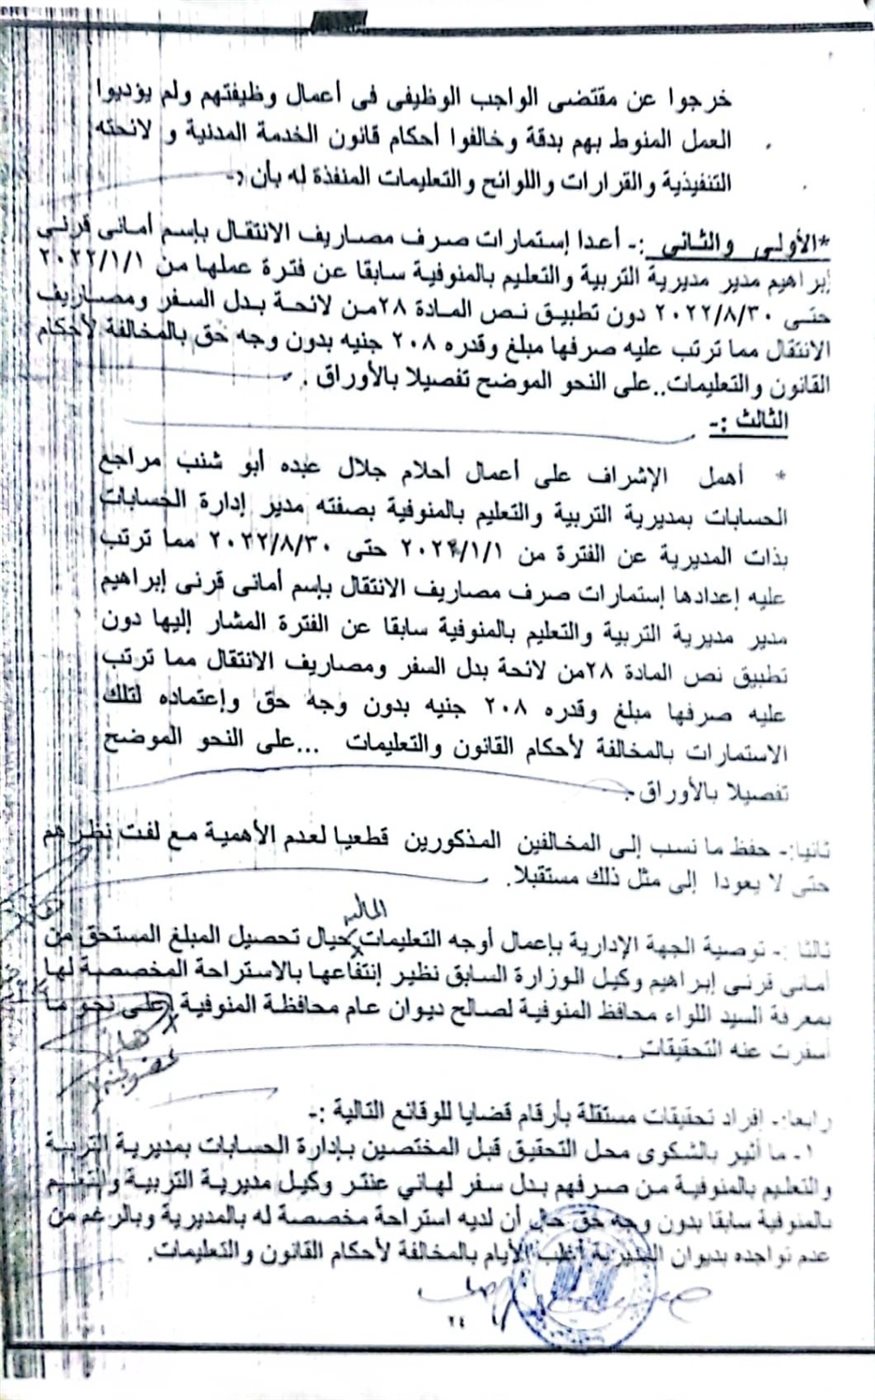 خرجوا عن مقتضى الواجب الوظيفى فى أعمال وظيفتهم ولم يؤديوا
العمل المنوط بهم بدقة وخالفوا أحكام قانون الخدمة المدنية و لائحته
التنفيذية والقرارات واللوائح والتعليمات المنفذة له بأن :-
*الأولى والثانى :- أعدا إستمارات صرف مصاريف الانتقال بإسم أمانى قرنى
إبراهيم مدير مديرية التربية والتعليم بالمنوفية سابقا عن فترة عملها من ٢٠٢٢/١/١
حتى ٢٠٢٢/٨/٣٠ دون تطبيق نص المادة ٢٨من لائحة بدل السفر ومصاريف
الانتقال مما ترتب عليه صرفها مبلغ وقدره ٢٠٨ جنيه بدون وجه حق بالمخالفة لأحكام
القانون والتعليمات..على النحو الموضح تفصيلا بالأوراق .
الثالث :-
* أهمل الإشراف على أعمال أحلام جلال عبده أبو شنب مراجع
الحسابات بمديرية التربية والتعليم بالمنوفية بصفته مدير إدارة الحسابات
بذات المديرية عن الفترة من ٢٠٢٢/١/١ حتى ٢٠٢٢/٨/٣٠ مما ترتب
عليه إعدادها إستمارات صرف مصاريف الانتقال بإسم أمانى قرنى إبراهيم
مدير مديرية التربية والتعليم بالمنوفية سابقا عن الفترة المشار إليها دون
تطبيق نص المادة ٢٨من لائحة بدل السفر ومصاريف الانتقال مما ترتب
عليه صرفها مبلغ وقدره ٢٠٨ جنيه بدون وجه حق وإعتماده لتلك
الاستمارات بالمخالفة لأحكام القانون والتعليمات ...على النحو الموضح
تفصيلا بالأوراق .
ثانيا:- حفظ ما نسب إلى المخالفين المذكورين قطعيا لعدم الأهمية مع لفت نظرهم
حتى لا يعودا إلى مثل ذلك مستقبلا.
المالية
ثالثا :- توصية الجهة الإدارية بإعمال أوجه التعليمات حيال تحصيل المبلغ المستحق من
أمانى قرنى إبراهيم وكيل الوزارة السابق نظير إنتفاعها بالاستراحة المخصصة لها
بمعرفة السيد اللواء محافظ المنوفية لصالح ديوان عام محافظة المنوفية على نحو ما
أسفرت عنه التحقيقات .
رابعا:- إفراد تحقيقات مستقلة بأرقام قضايا للوقائع التالية :-
١- ما أثير بالشكوى محل التحقيق قبل المختصين بإدارة الحسابات بمديرية التربية
والتعليم بالمنوفية من صرفهم بدل سفر لهاني عنتر وكيل مديرية التربية والتعليم
بالمنوفية سابقا بدون وجه حق حال أن لديه استراحة مخصصة له بالمديرية وبالرغم من
عدم تواجده بديوان المديرية أغلب الأيام بالمخالفة لأحكام القانون والتعليمات.
٢٤